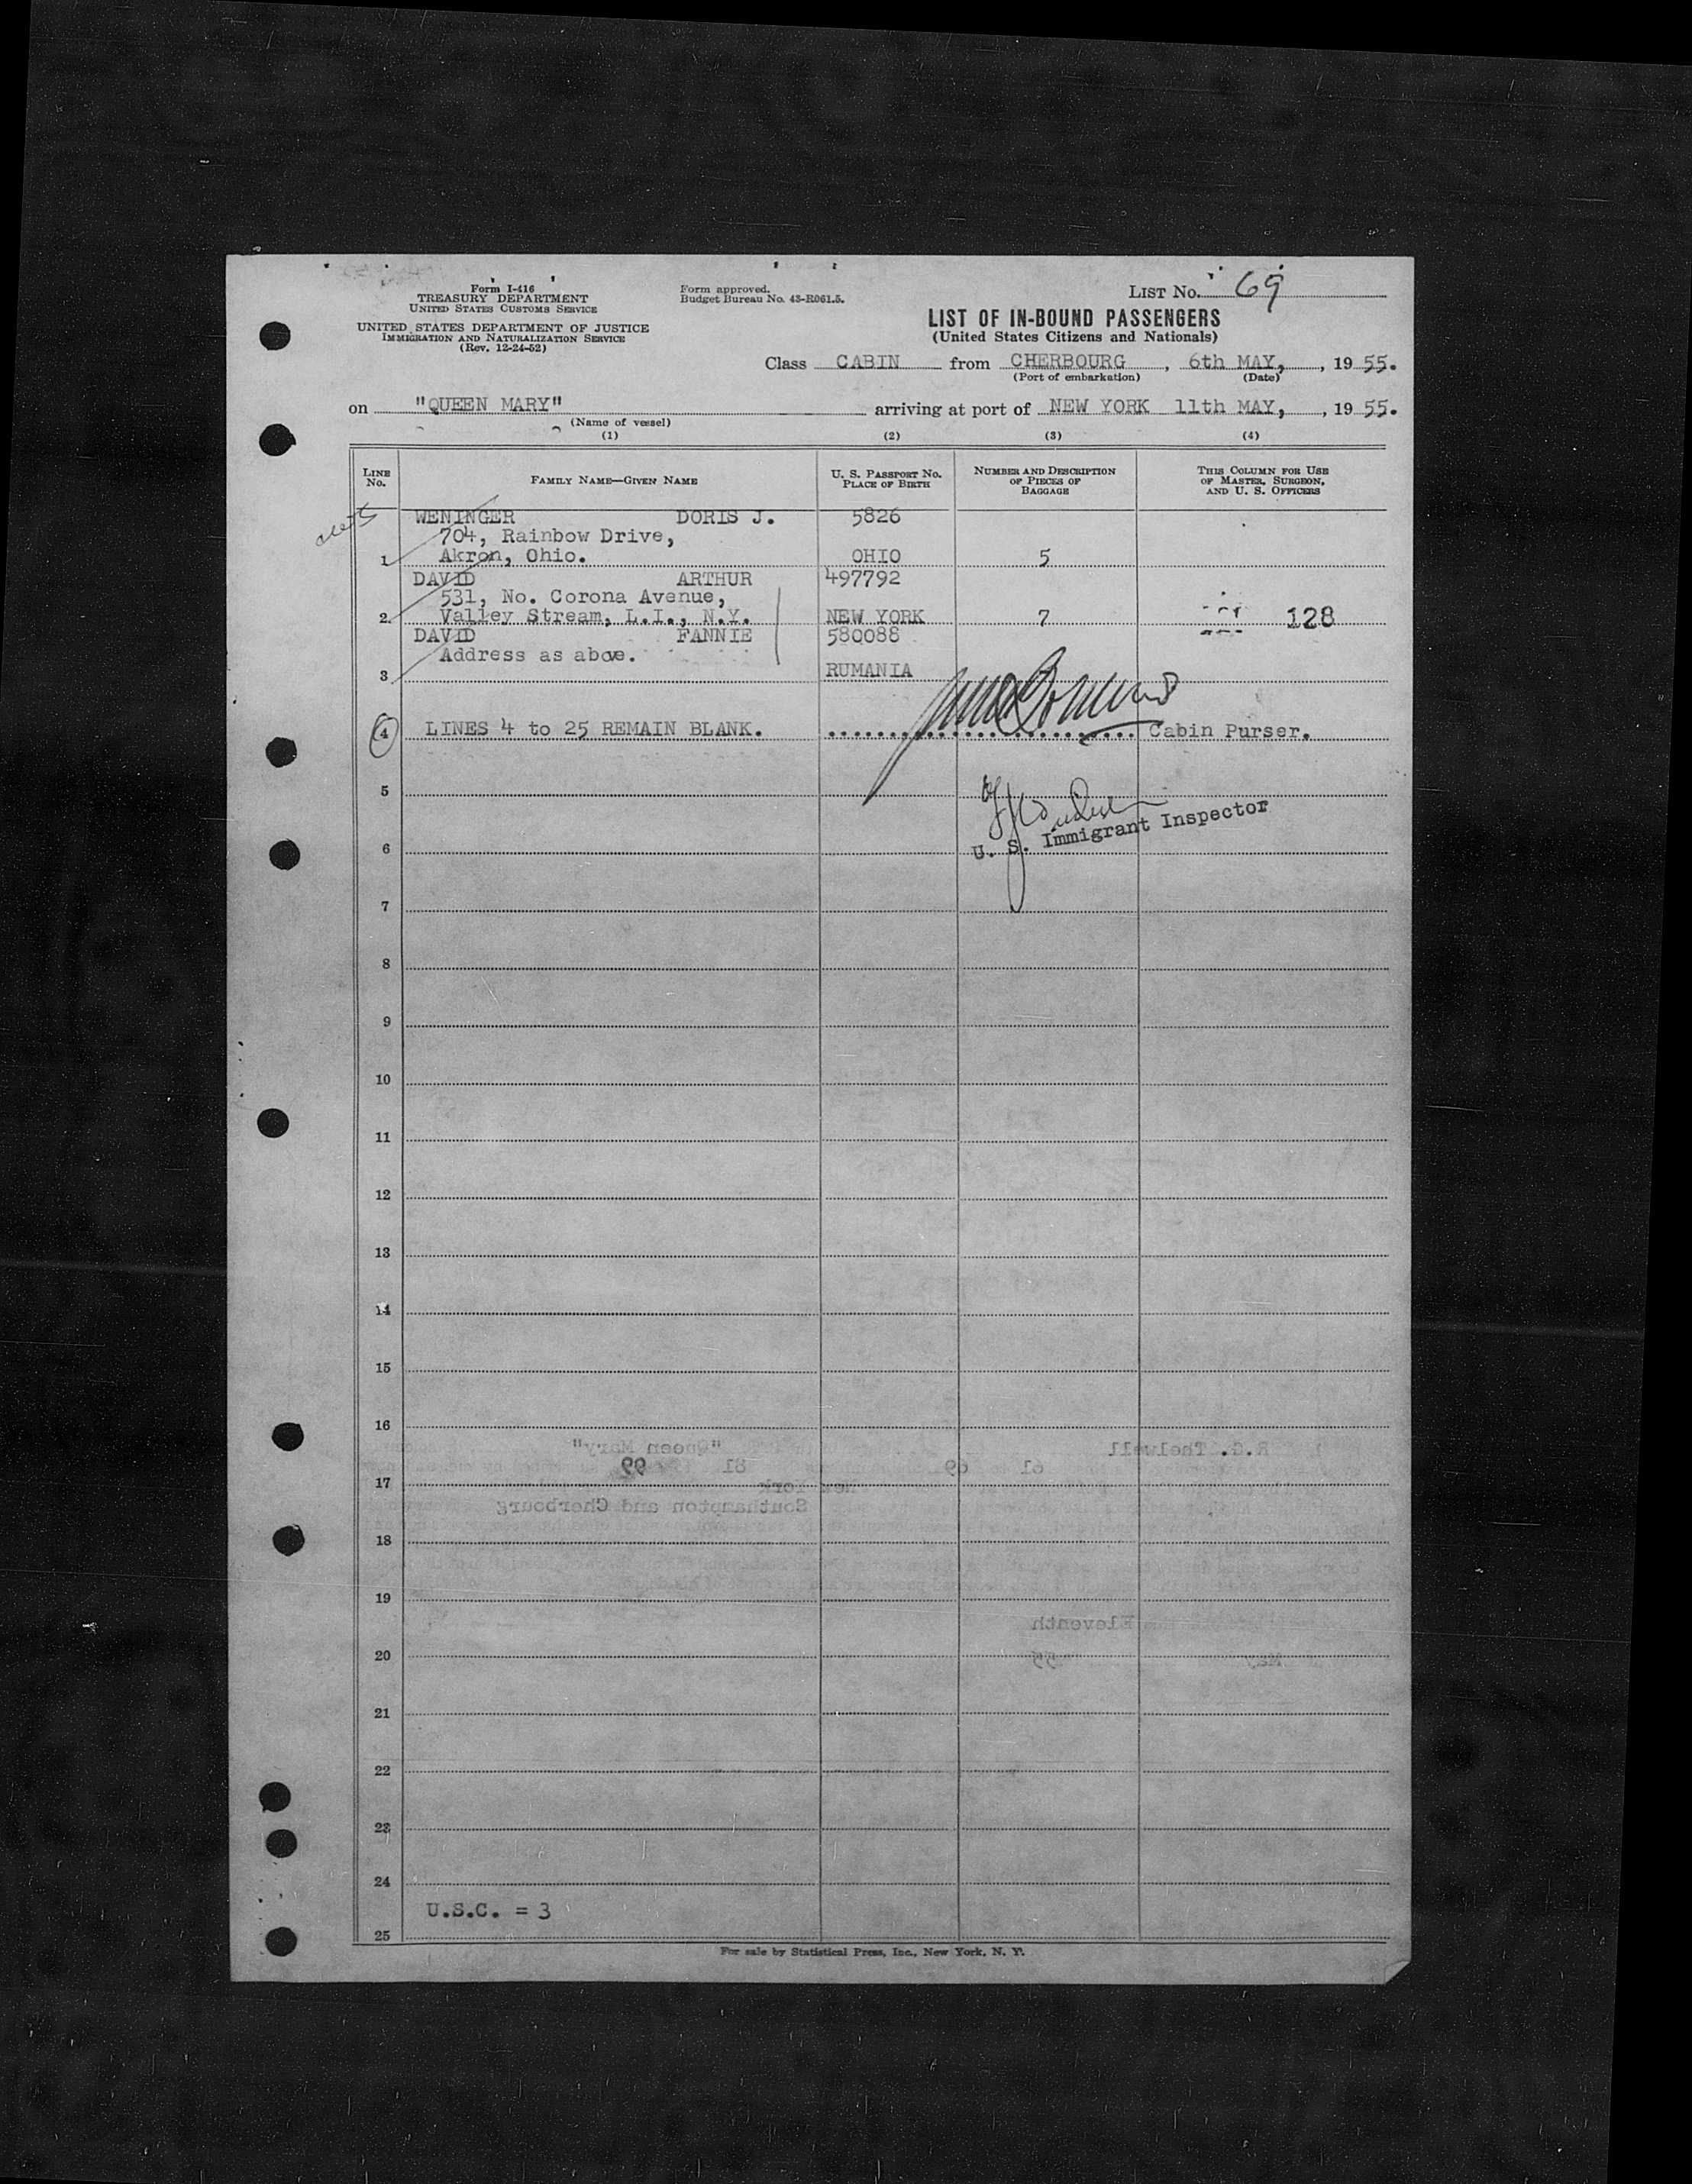 Form I-416
TREASURY DEPARTMENT
UNITED STATES CUSTOMS SERVICE
UNITED STATES DEPARTMENT OF JUSTICE
IMMIGRATION AND NATURALIZATION SERVICE
(Rev. 12-24-52)
Form approved.
Budget Bureau No. 43-R061.5.
LIST No. 69
LIST OF IN-BOUND PASSENGERS
(United States Citizens and Nationals)
Class CABIN from CHERBOURG, 6th MAY, , 19 55.
(Port of embarkation) (Date)
on "QUEEN MARY" arriving at port of NEW YORK 11th MAY, , 19 55.
(Name of vessel)
(1) (2) (3) (4)
LINE No. FAMILY NAME—GIVEN NAME U. S. PASSPORT No. PLACE OF BIRTH NUMBER AND DESCRIPTION OF PIECES OF BAGGAGE THIS COLUMN FOR USE OF MASTER, SURGEON, AND U. S. OFFICERS
WENINGER DORIS J. 5826
704, Rainbow Drive,
1 Akron, Ohio. OHIO 5
DAVID ARTHUR 497792
531, No. Corona Avenue,
2 Valley Stream, L.I., N.Y. NEW YORK 7 128
DAVID FANNIE 580088
Address as above.
3 RUMANIA
4 LINES 4 to 25 REMAIN BLANK. Cabin Purser.
5
U. S. Immigrant Inspector
6
7
8
9
10
11
12
13
14
15
16
"Queen Mary" R.G. Thelwell
61 69 81 99
17
New York
Southampton and Cherbourg
18
19
Eleventh
20
May 55
21
22
23
24
U.S.C. = 3
25
For sale by Statistical Press, Inc., New York, N. Y.